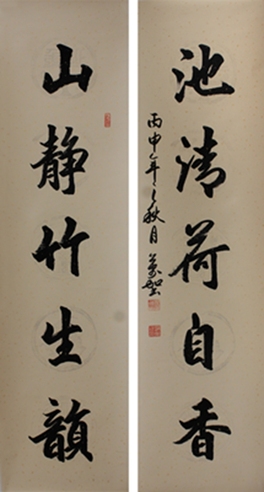 池清荷自香
丙申年之秋月
山静竹生韻